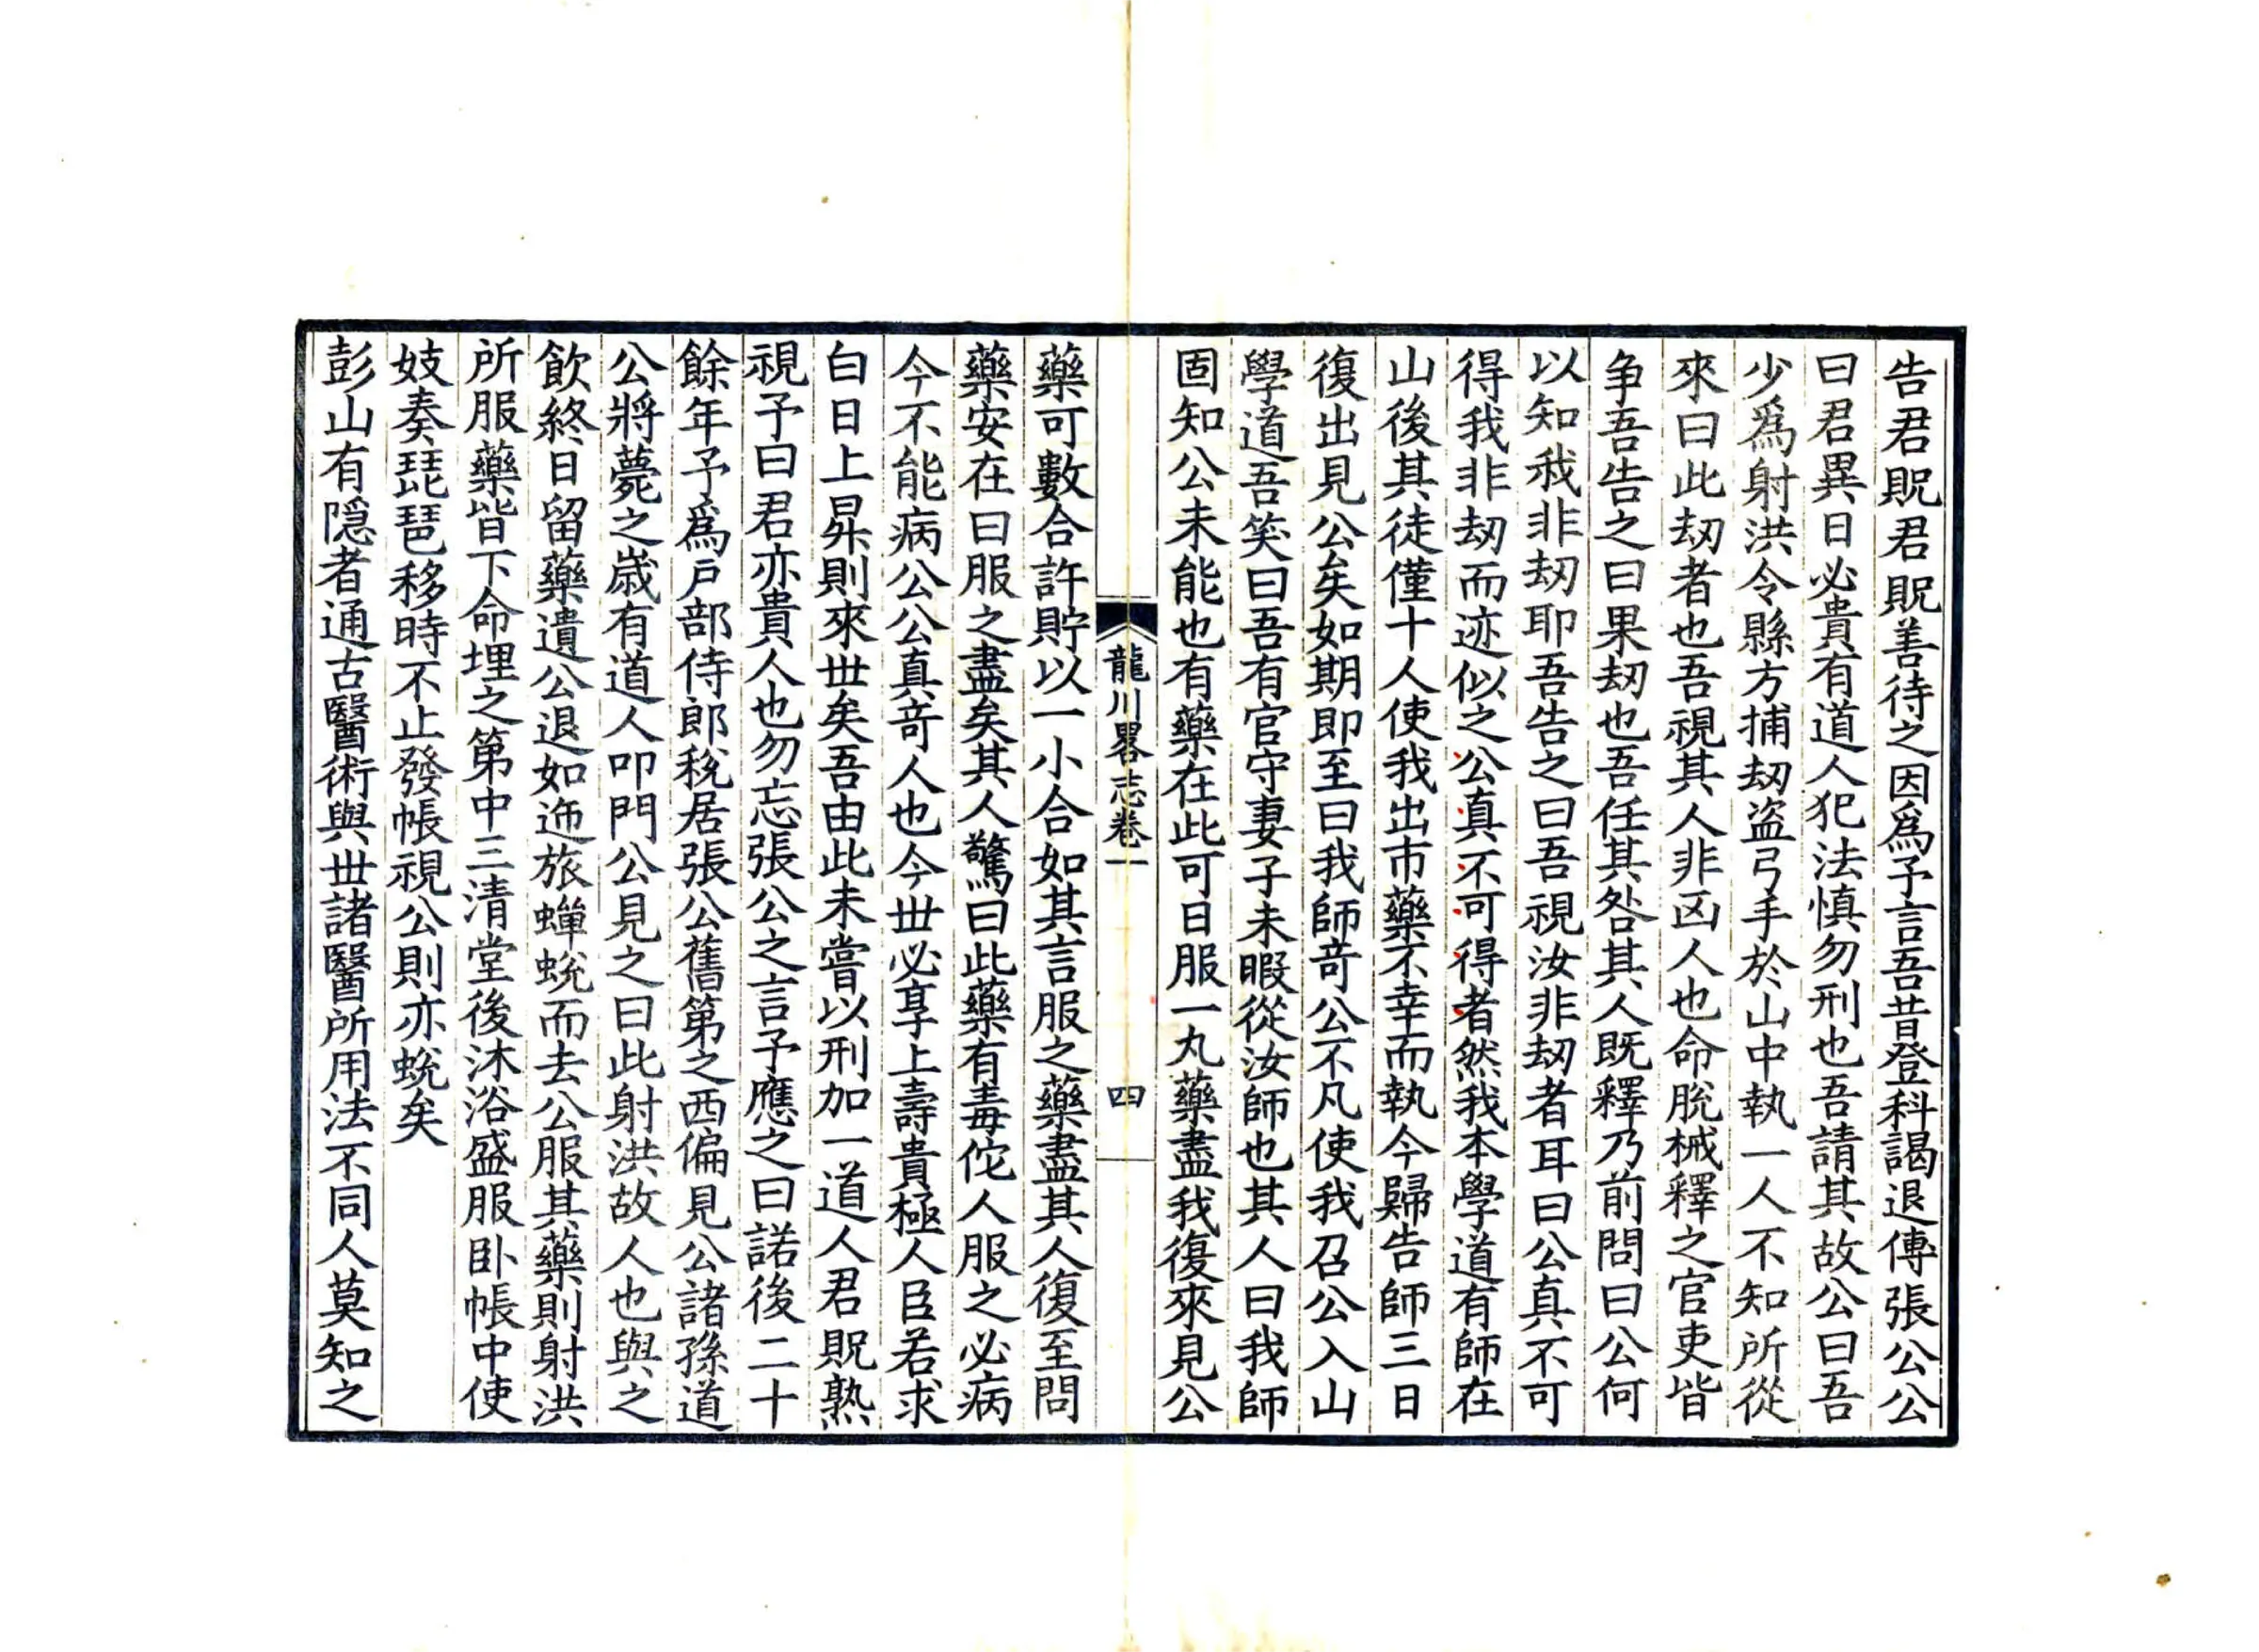 告君貺君貺善待之因爲予言吾昔登科謁退傅張公公
曰君異日必貴有道人犯法慎勿刑也吾請其故公曰吾
少爲射洪令縣方捕刼盜弓手於山中執一人不知所從
來曰此刼者也吾視其人非凶人也命脫械釋之官吏皆
争吾告之曰果刼也吾任其咎其人既釋乃前問曰公何
以知我非刼耶吾告之曰吾視汝非刼者耳曰公真不可
得我非刼而迹似之公真不可得者然我本學道有師在
山後其徒僅十人使我出市藥不幸而執今歸告師三日
復出見公矣如期即至曰我師竒公不凡使我召公入山
學道吾笑曰吾有官守妻子未暇從汝師也其人曰我師
固知公未能也有藥在此可日服一丸藥盡我復來見公
龍川畧志卷一
四
藥可數合許貯以一小合如其言服之藥盡其人復至問
藥安在曰服之盡矣其人驚曰此藥有毒佗人服之必病
今不能病公公真竒人也今丗必享上壽貴極人臣若求
白日上昇則來丗矣吾由此未嘗以刑加一道人君貺熟
視予曰君亦貴人也勿忘張公之言予應之曰諾後二十
餘年予爲戶部侍郎稅居張公舊第之西偏見公諸孫道
公將薨之歲有道人叩門公見之曰此射洪故人也與之
飲終日留藥遺公退如逆旅蟬蛻而去公服其藥則射洪
所服藥皆下命埋之第中三清堂後沐浴盛服卧帳中使
妓奏琵琶移時不止發帳視公則亦蛻矣
彭山有隱者通古醫術與丗諸醫所用法不同人莫知之